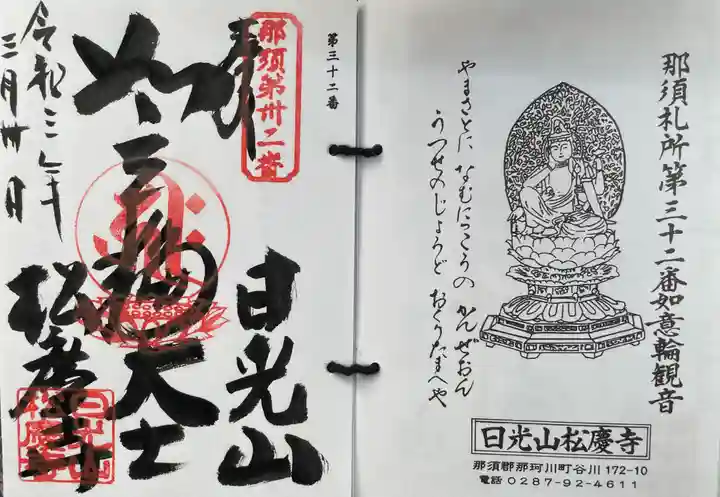 那須札所第三十二番如意輪観音
やまさとに なむにつこうの かんぜおん
うつせのじょうど おくりたまへや
日光山松慶寺
那須郡那珂川町谷川172-10
電話 0287-92-4611
第三十二番
奉
那須第卅二番
大士
日光山
松慶寺
令和三年
三月卅日